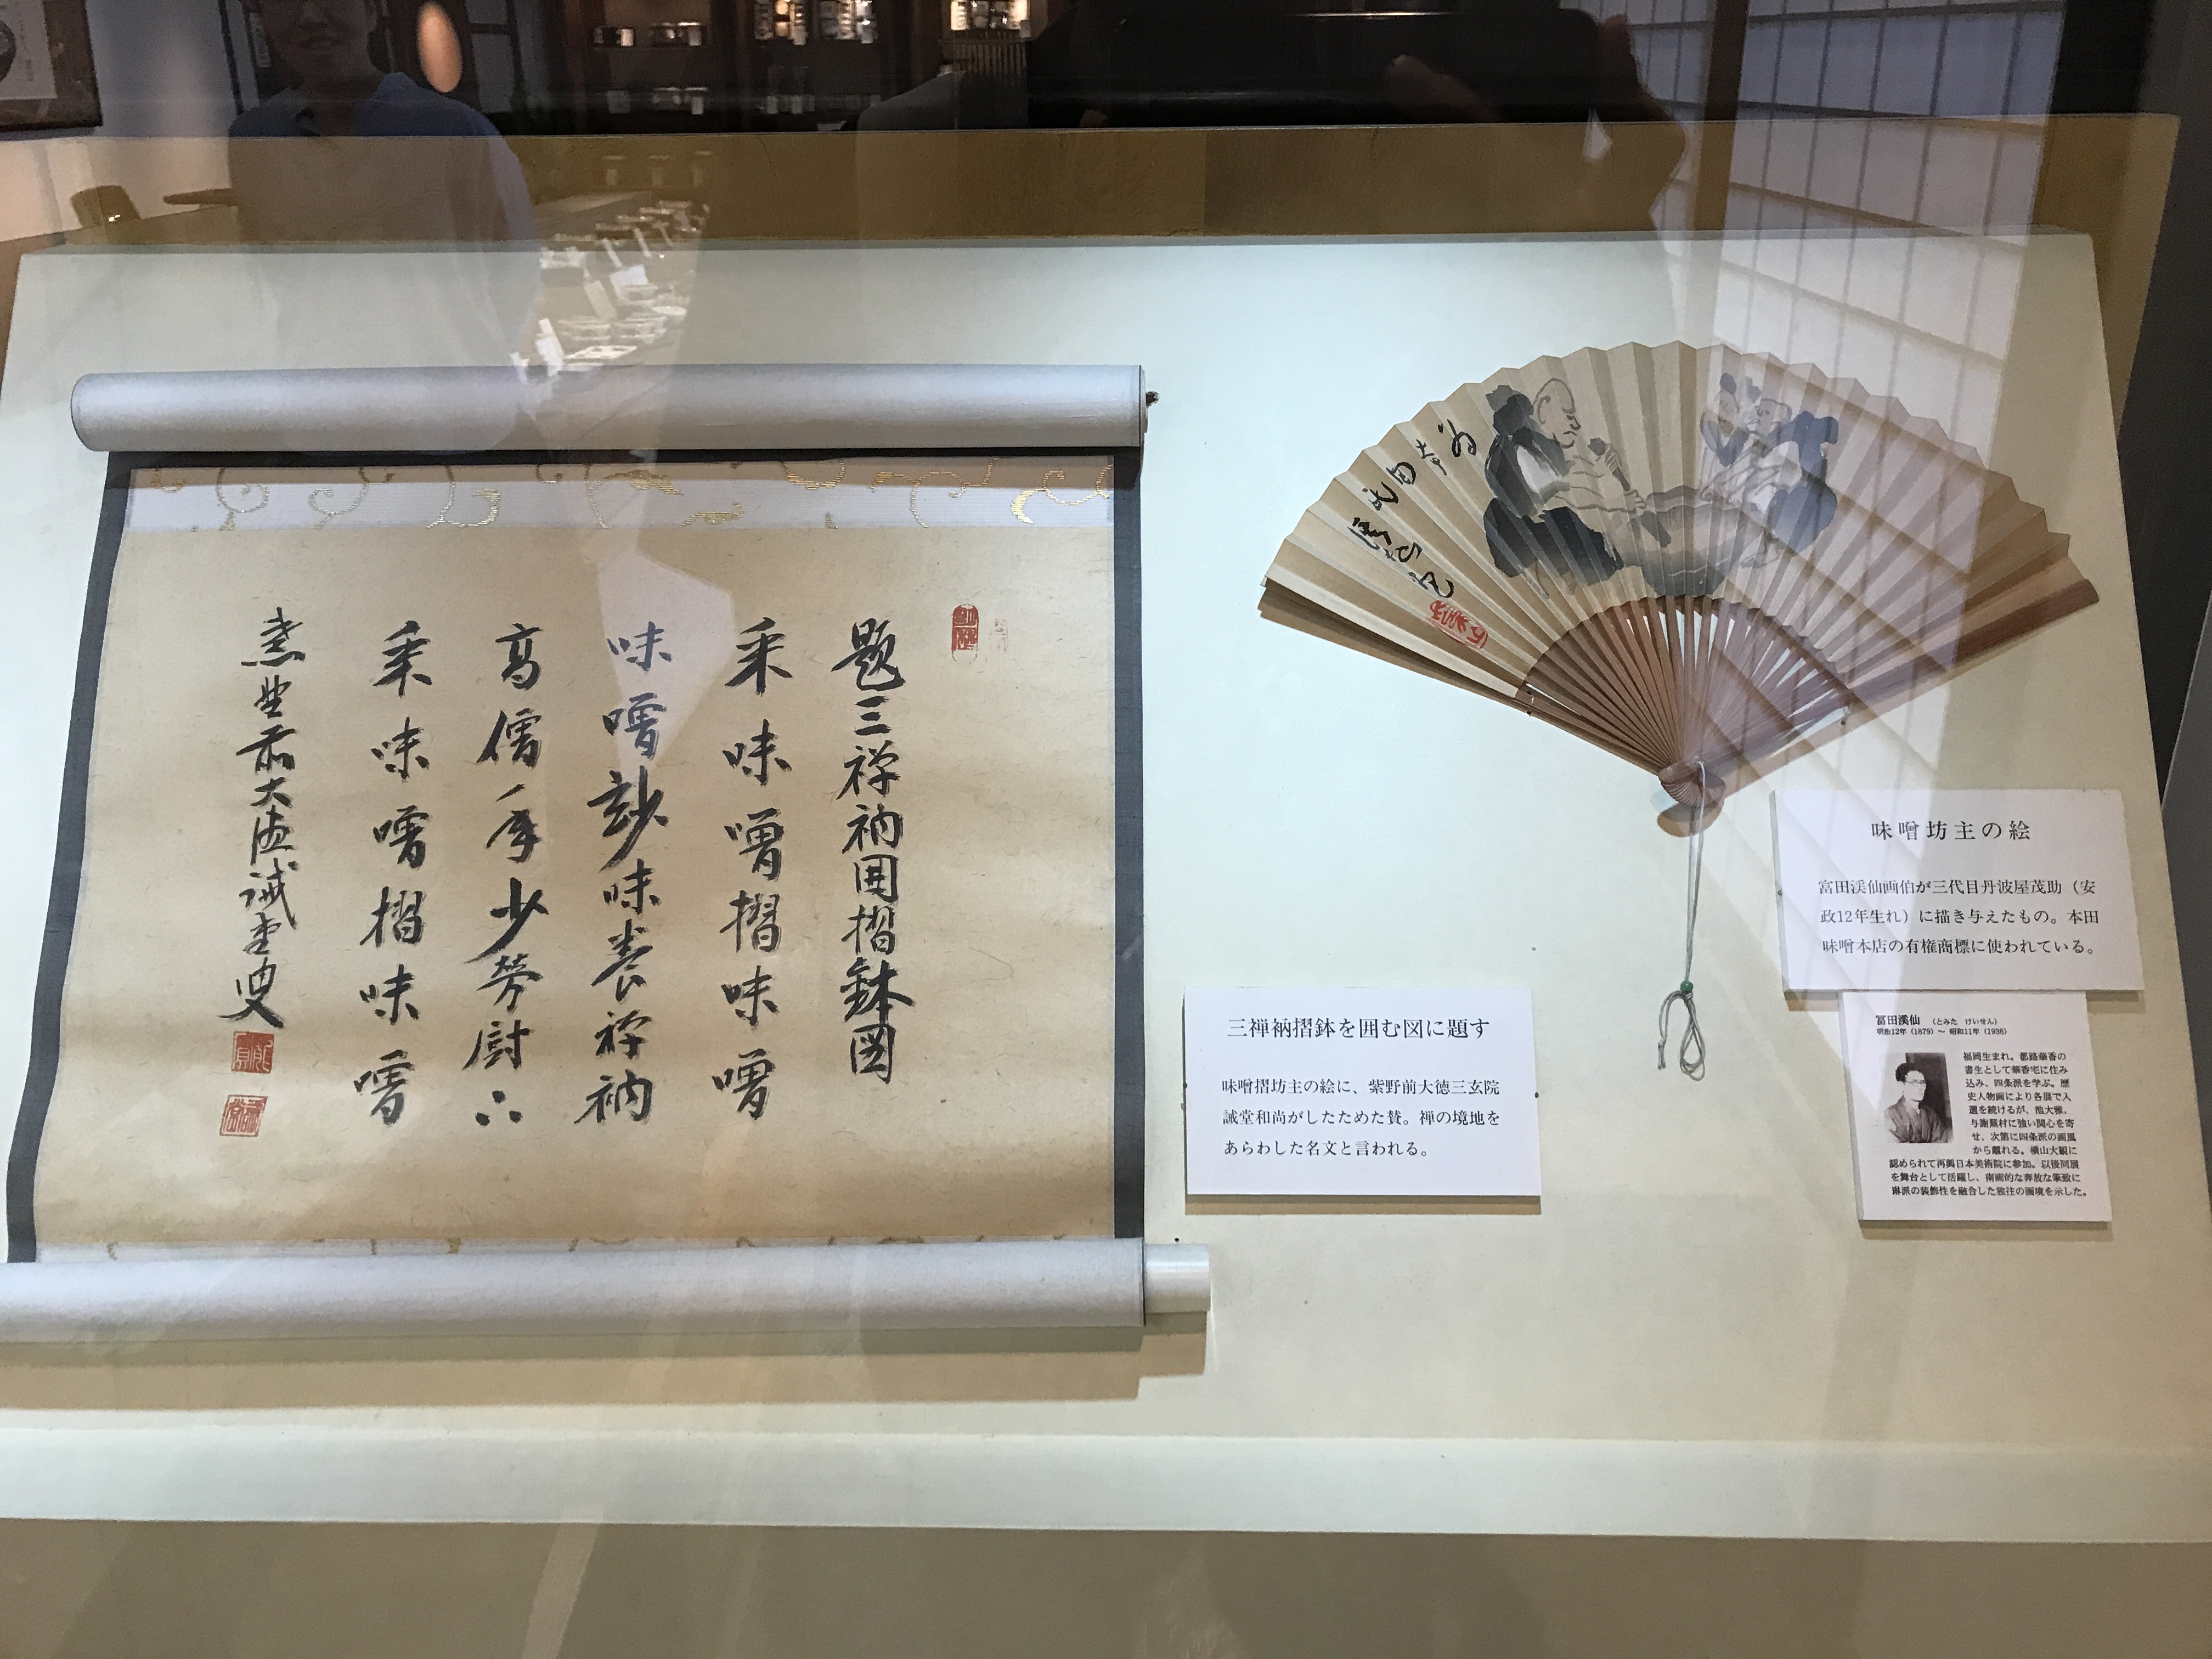 題三禅衲囲摺鉢図
釆味噌摺味噌
味噌玅味養禅衲
高僧手少労厨
釆味噌摺味噌
紫野前大徳誠堂叟
三禅衲摺鉢を囲む図に題す
味噌摺坊主の絵に、紫野前大徳三玄院
誠堂和尚がしたためた賛。禅の境地を
あらわした名文と言われる。
味噌坊主の絵
富田渓仙画伯が三代目丹波屋茂助（安
政12年生れ）に描き与えたもの。本田
味噌本店の有権商標に使われている。
冨田溪仙　（とみた　けいせん）
明治12年（1879）～ 昭和11年（1936）
福岡生まれ。都路華香の
書生として華香宅に住み
込み、四条派を学ぶ。歴
史人物画により各展で入
選を続けるが、池大雅、
与謝蕪村に強い関心を寄
せ、次第に四条派の画風
から離れる。横山大観に
認められて再興日本美術院に参加。以後同展
を舞台として活躍し、南画的な奔放な筆致に
琳派の装飾性を融合した独注の画境を示した。